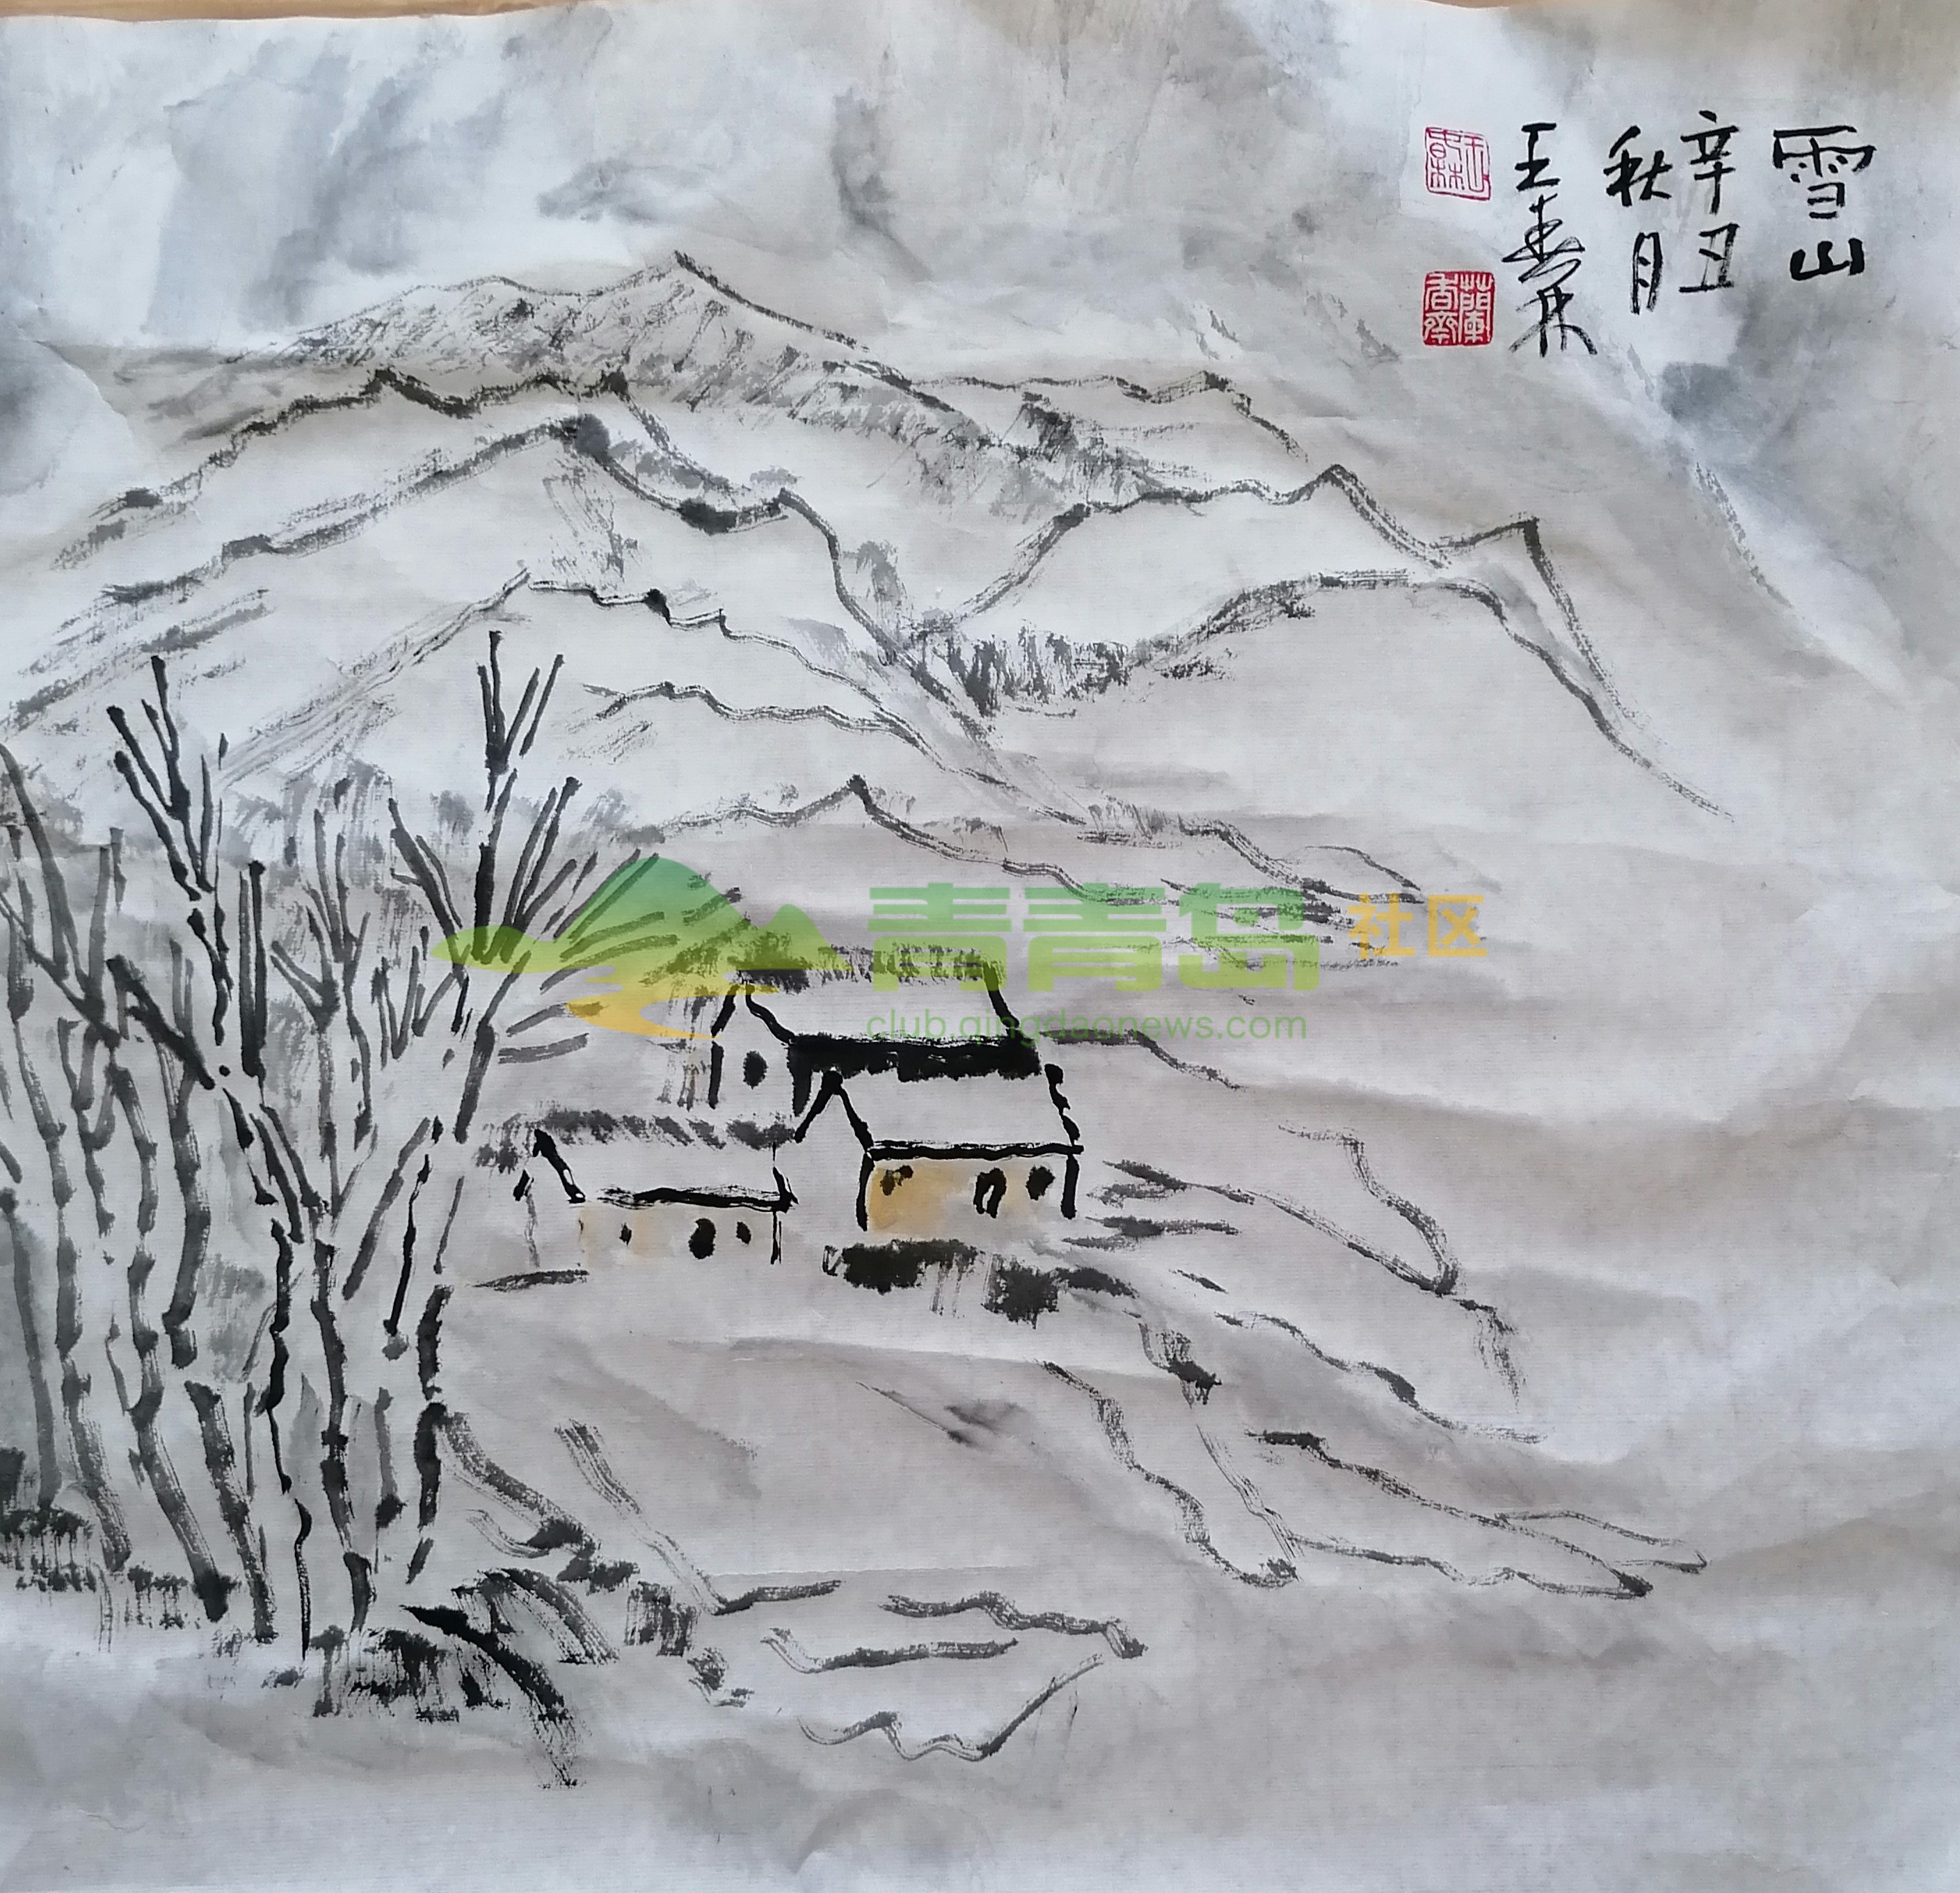 雪山
辛丑
秋月
王春林
青青岛社区
club.qingdaonews.com